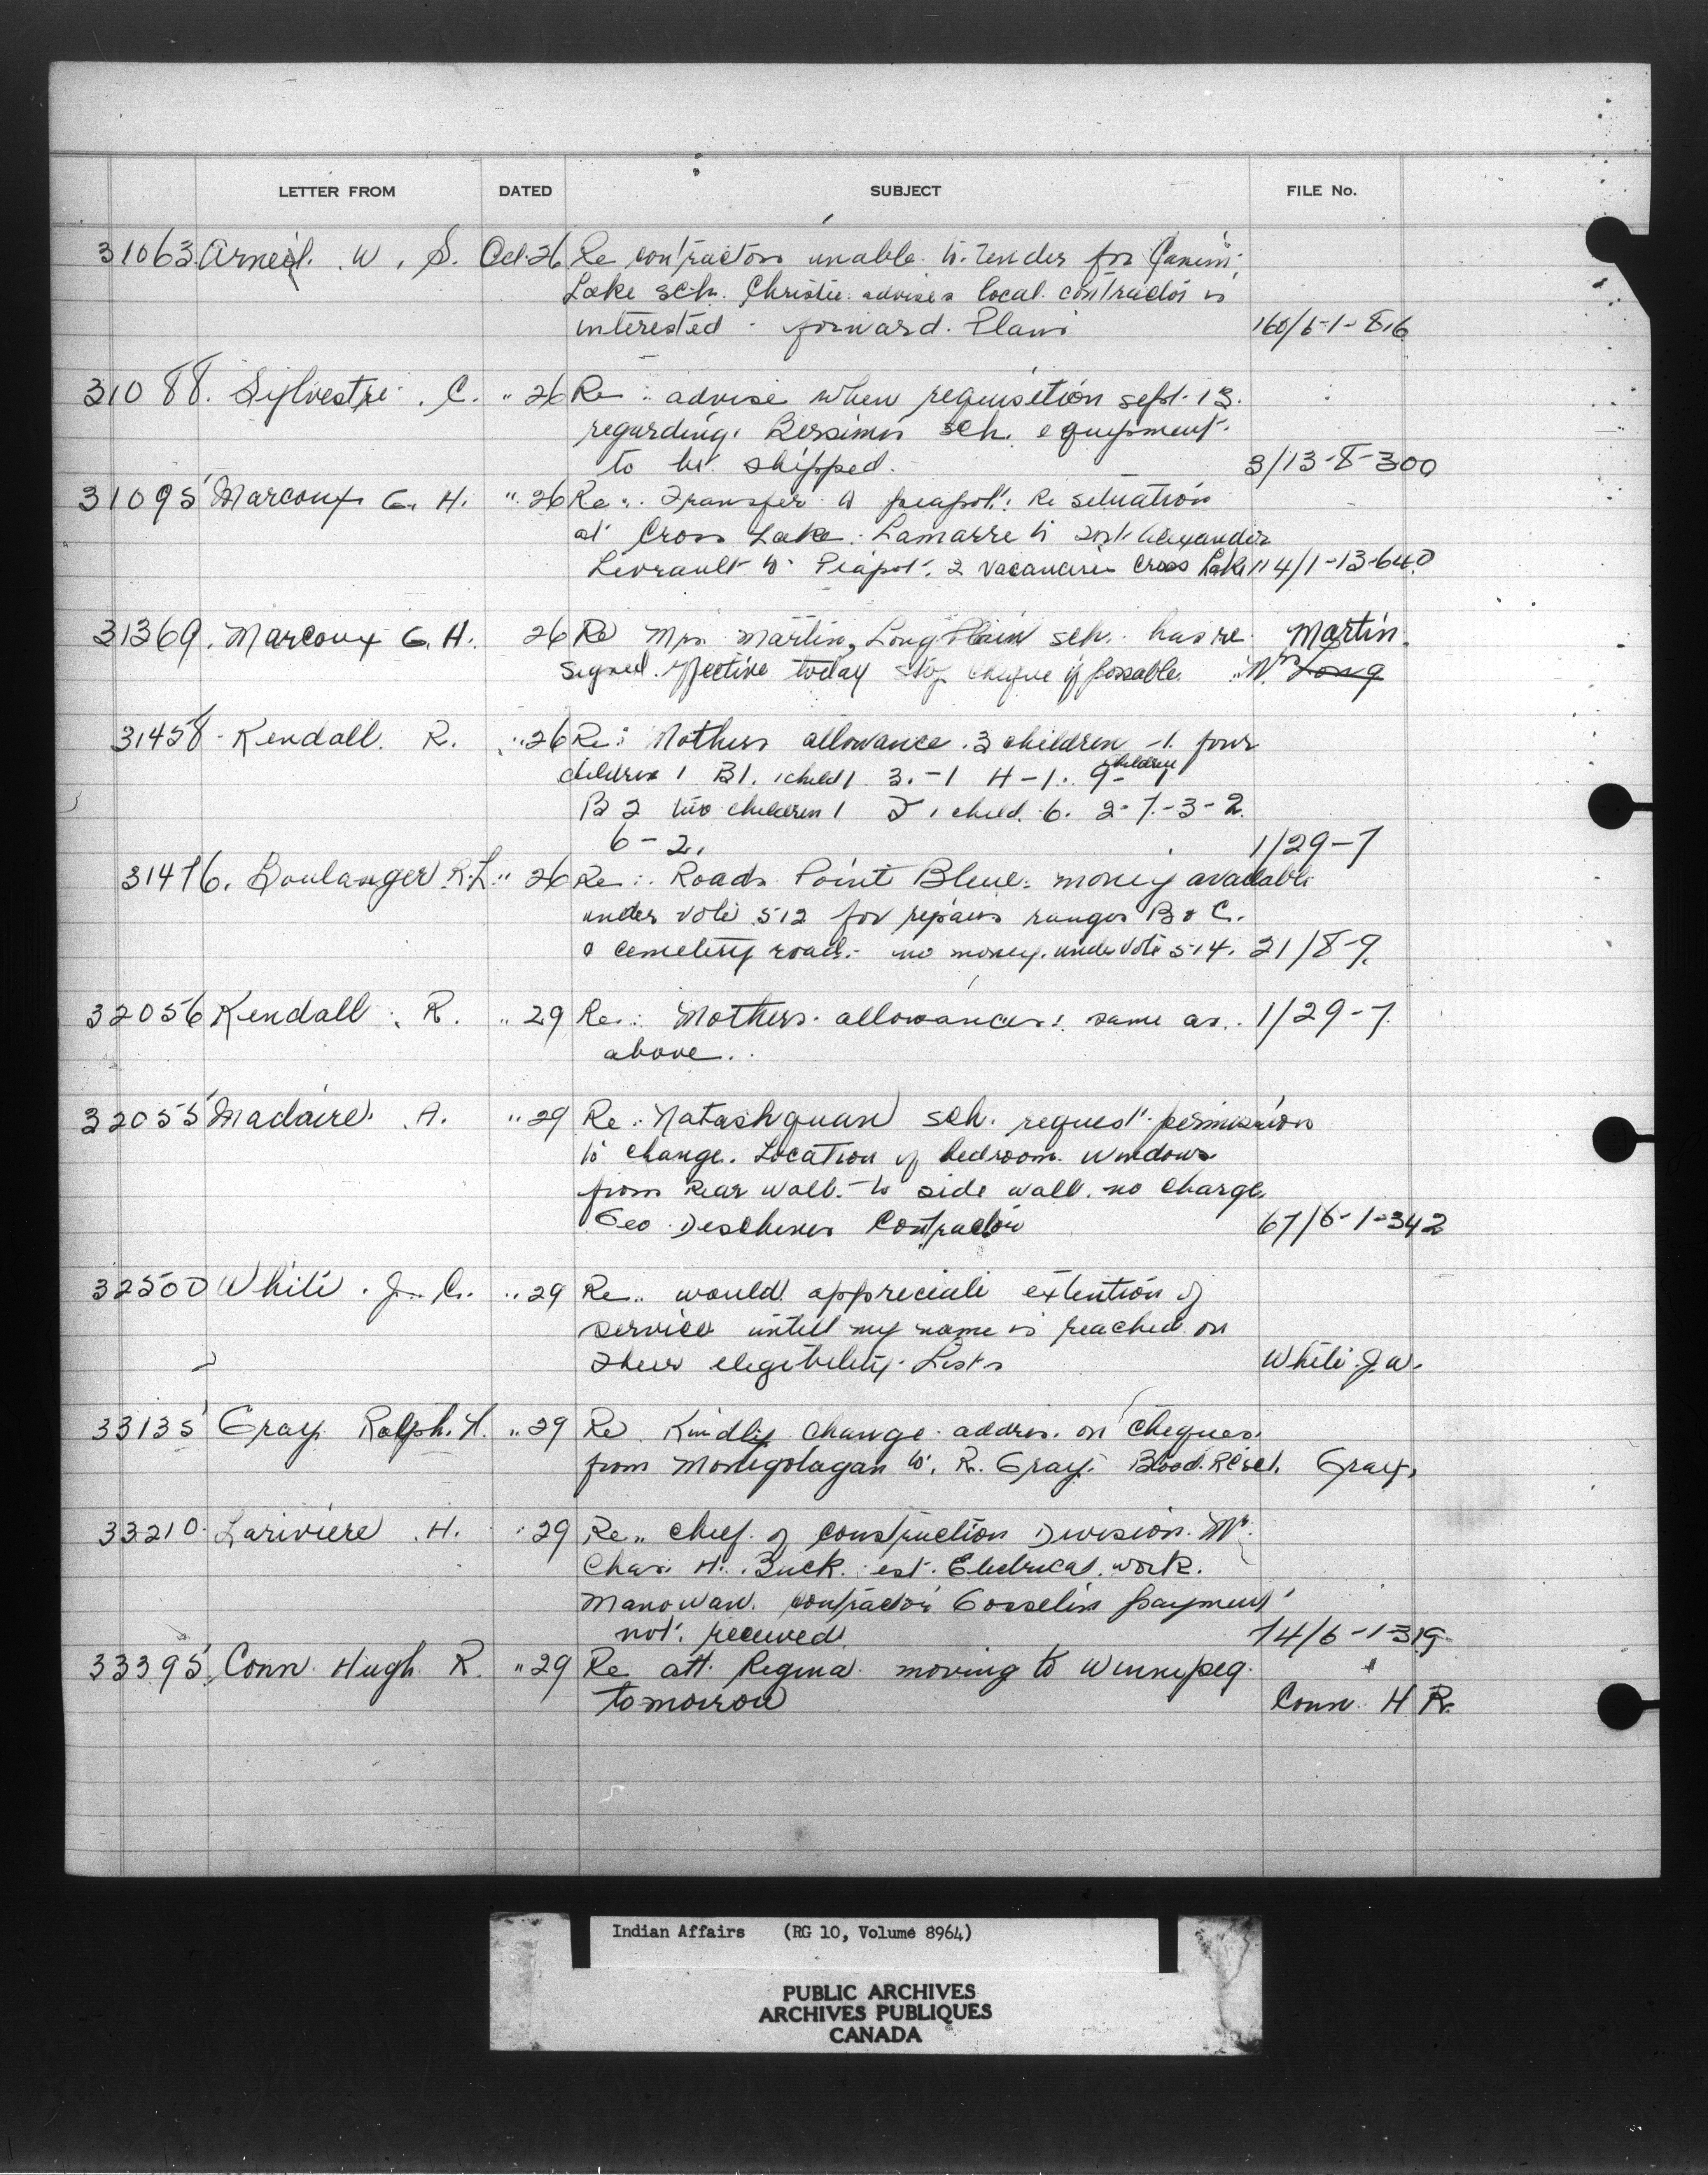 LETTER FROM DATED SUBJECT FILE No.
31063 Arneil. W. S. Oct. 26 Re contractors unable to tender for Canim
Lake sch. Christie advises local contractor is
interested - forward. Plans 160/6-1-816
31088. Sylvestre. C. " 26 Re: advise when requisition sept. 13.
regarding Bersimis sch. equipment.
to be shipped. 3/13-8-300
31095 Marcoux G. H. " 26 Re: Transfer to peapot: Re situation
at Cross Lake. Lamarre to Fort Alexander
Levrault to Piapot. 2 vacancies Cross Lake 114/1-13-640
31369. Marcoux G. H. 26 Re Mrs Martin, Long Plain sch. has re Martin.
signed. effective today stop cheque if possable. Mrs Long
31458 - Kendall. R. " 26 Re: Mothers allowance. 3 children -1. four
children 1 B1. 1 child 1 3.-1 4-1. 9- children 1
B 2 two children 1 1 child. 6. 2-7-3-2.
6-2. 1/29-7
31476. Boulanger R.L. " 26 Re: Roads Point Bleue. money available
under vote 512 for repairs ranges B & C.
& cemetery road. no money. under vote 514. 21/8-9.
32056 Kendall. R. " 29 Re: Mothers. allowances: same as. 1/29-7
above.
32055 Madaire. A. " 29 Re: Natashquan sch. request permission
to change. Location of bedroom windows
from Rear wall. to side wall. no charge.
Geo Deschenes Contractor 67/6-1-342
32500 White. J. C. " 29 Re.. would appreciate extention of
service untill my name is reached on
their elegibility. Lists White. J.W.
33135 Gray Ralph. H. " 29 Re Kindly change addres. on cheques.
from Manigotagan to. R. Gray. Blood. Reser. Gray.
33210. Lariviere. H. " 29 Re.. chief of construction Division. Mr.
Chas. H. Buck. est. Electrical. work.
Manowan. contractor Gosselin payment
not. received. 74/6-1-319
33395. Conn. Hugh. R. " 29 Re att. Regina. moving to Winnipeg.
tomorrow Conn. H R.
Indian Affairs (RG 10, Volume 8964)
PUBLIC ARCHIVES
ARCHIVES PUBLIQUES
CANADA